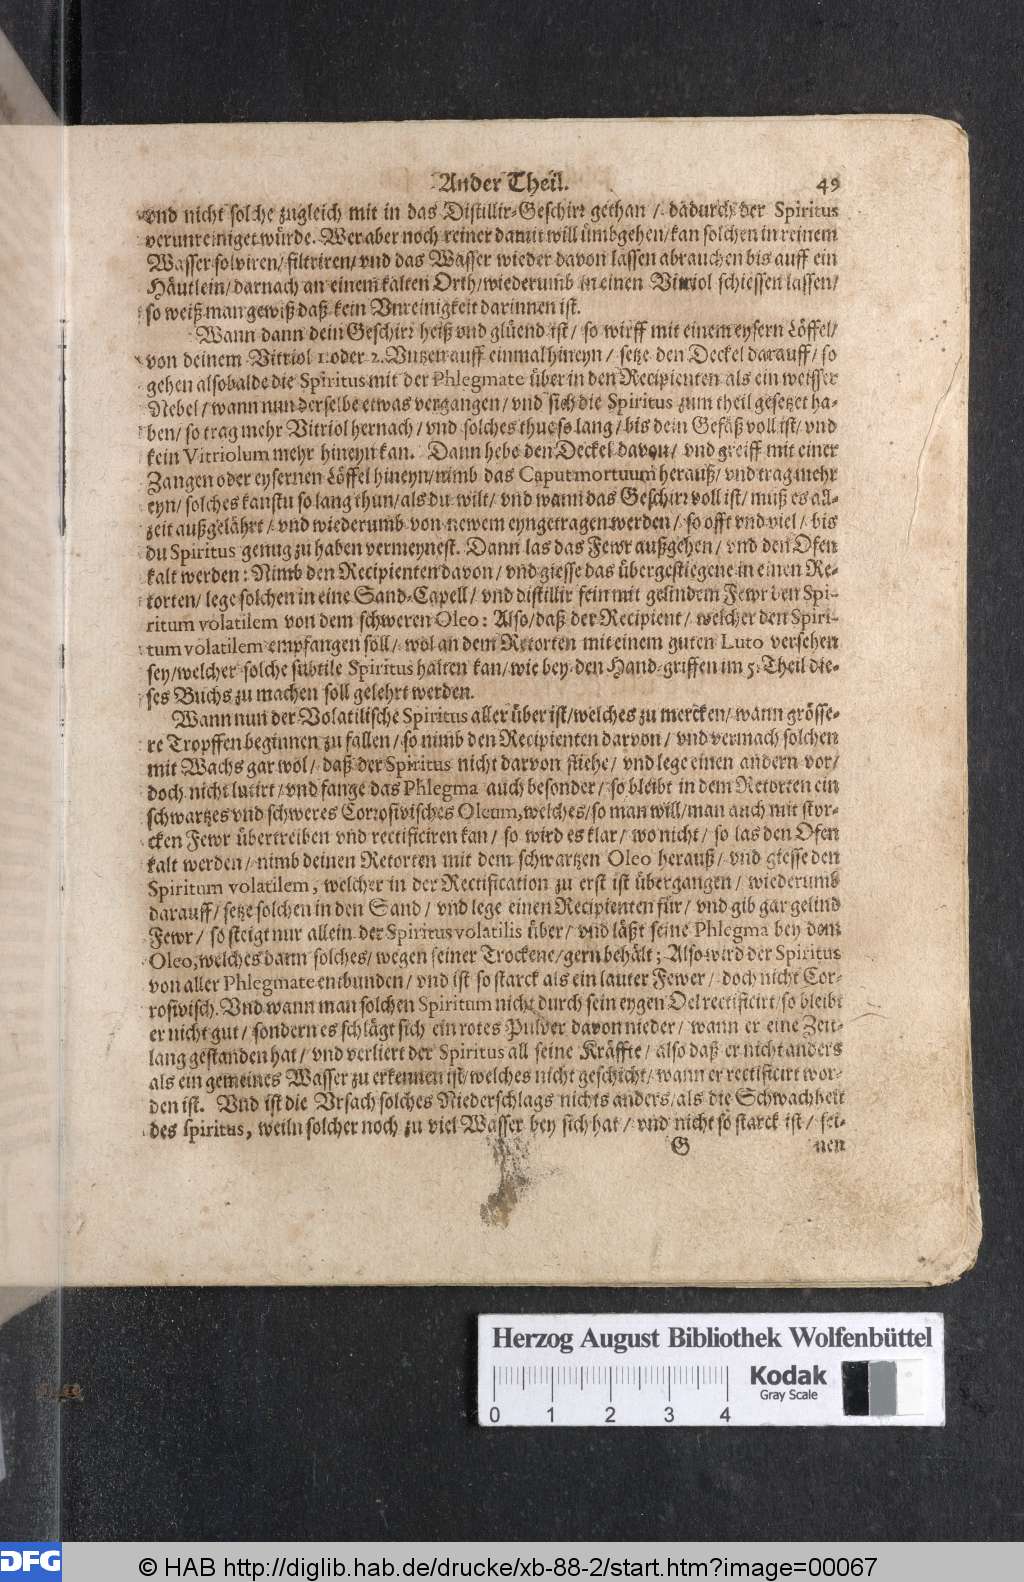 Ander Theil. 49
vnd nicht solche zugleich mit in das Distillir-Geschirr gethan / dadurch der Spiritus
verunreiniget würde. Wer aber noch reiner damit will umbgehen / kan solchen in reinem
Wasser solviren / filtriren / vnd das Wasser wieder davon lassen abrauchen bis auff ein
Häutlein / darnach an einem kalten Orth / wiederumb in einen Vitriol schiessen lassen /
so weiß man gewiß daß kein Vnreinigkeit darinnen ist.
Wann dann dein Geschirr heiß vnd glüend ist / so wirff mit einem eysern Löffel /
von deinem Vitriol 1. oder 2. Vntzen auff einmal hineyn / setze den Deckel darauff / so
gehen alsobalde die Spiritus mit der Phlegmate über in den Recipienten als ein weisser
Nebel / wann nun derselbe etwas vergangen / vnd sich die Spiritus zum theil gesetzet ha-
ben / so trag mehr Vitriol hernach / vnd solches thue so lang / bis dein Gefäß voll ist / vnd
kein Vitriolum mehr hineyn kan. Dann hebe den Deckel davon / vnd greiff mit einer
Zangen oder eysernen Löffel hineyn / nimb das Caput mortuum herauß / vnd trag mehr
eyn / solches kanstu so lang thun / als du wilt / vnd wann das Geschirr voll ist / muß es all-
zeit außgelährt / vnd wiederumb von newem eyngetragen werden / so offt vnd viel / bis
du Spiritus genug zu haben vermeynest. Dann las das Fewr außgehen / vnd den Ofen
kalt werden: Nimb den Recipienten davon / vnd giesse das übergestiegene in einen Re-
torten / lege solchen in eine Sand-Capell / vnd distillir fein mit gelindem Fewr den Spi-
ritum volatilem von dem schweren Oleo: Also / daß der Recipient / welcher den Spiri-
tum volatilem empfangen soll / wol an dem Retorten mit einem guten Luto versehen
sey / welcher solche subtile Spiritus halten kan / wie bey den Hand-griffen im 5. Theil die-
ses Buchs zu machen soll gelehrt werden.
Wann nun der Volatilische Spiritus aller über ist / welches zu mercken / wann grösse-
re Tropffen beginnen zu fallen / so nimb den Recipienten darvon / vnd vermach solchen
mit Wachs gar wol / daß der Spiritus nicht darvon fliehe / vnd lege einen andern vor /
doch nicht lutirt / vnd fange das Phlegma auch besonder / so bleibt in dem Retorten ein
schwartzes vnd schweres Corrosivisches Oleum, welches / so man will / man auch mit stär-
cken Fewr übertreiben vnd rectificiren kan / so wird es klar / wo nicht / so las den Ofen
kalt werden / nimb deinen Retorten mit dem schwartzen Oleo herauß / vnd giesse den
Spiritum volatilem, welcher in der Rectification zu erst ist übergangen / wiederumb
darauff / setze solchen in den Sand / vnd lege einen Recipienten für / vnd gib gar gelind
Fewr / so steigt nur allein der Spiritus volatilis über / vnd läßt seine Phlegma bey dem
Oleo, welches dann solches / wegen seiner Trockene / gern behält; Also wird der Spiritus
von aller Phlegmate entbunden / vnd ist so starck als ein lauter Fewer / doch nicht Cor-
rosivisch. Vnd wann man solchen Spiritum nicht durch sein eygen Oel rectificirt / so bleibt
er nicht gut / sondern es schlägt sich ein rotes Pulver davon nieder / wann er eine Zeit-
lang gestanden hat / vnd verliert der Spiritus all seine Kräffte / also daß er nicht anders
als ein gemeines Wasser zu erkennen ist / welches nicht geschicht / wann er rectificirt wor-
den ist. Vnd ist die Vrsach solches Niederschlags nichts anders / als die Schwachheit
des spiritus, weiln solcher noch zu viel Wasser bey sich hat / vnd nicht so starck ist / sei-
G nen
Herzog August Bibliothek Wolfenbüttel
Kodak
Gray Scale
0 1 2 3 4
DFG
© HAB http://diglib.hab.de/drucke/xb-88-2/start.htm?image=00067